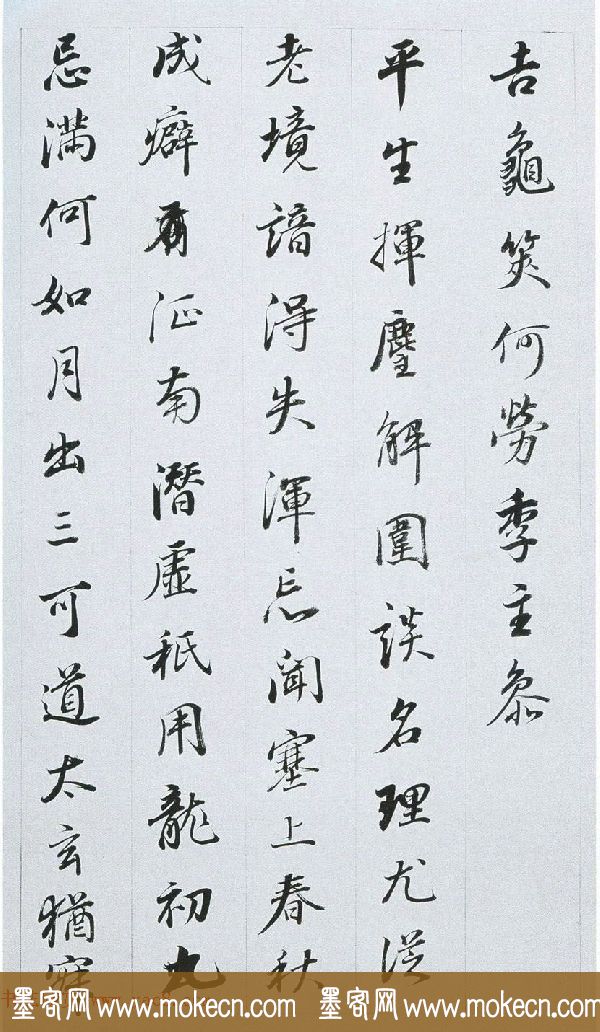 吉龜筴何勞季主叅
平生揮麈解圍談名理尤從
老境諳得失渾忘聞塞上春秋
成癖有征南潛虛秖用龍初九
忌滿何如月出三可道太玄猶寂
墨客网 www.mokecn.com 墨客网 www.mokecn.com